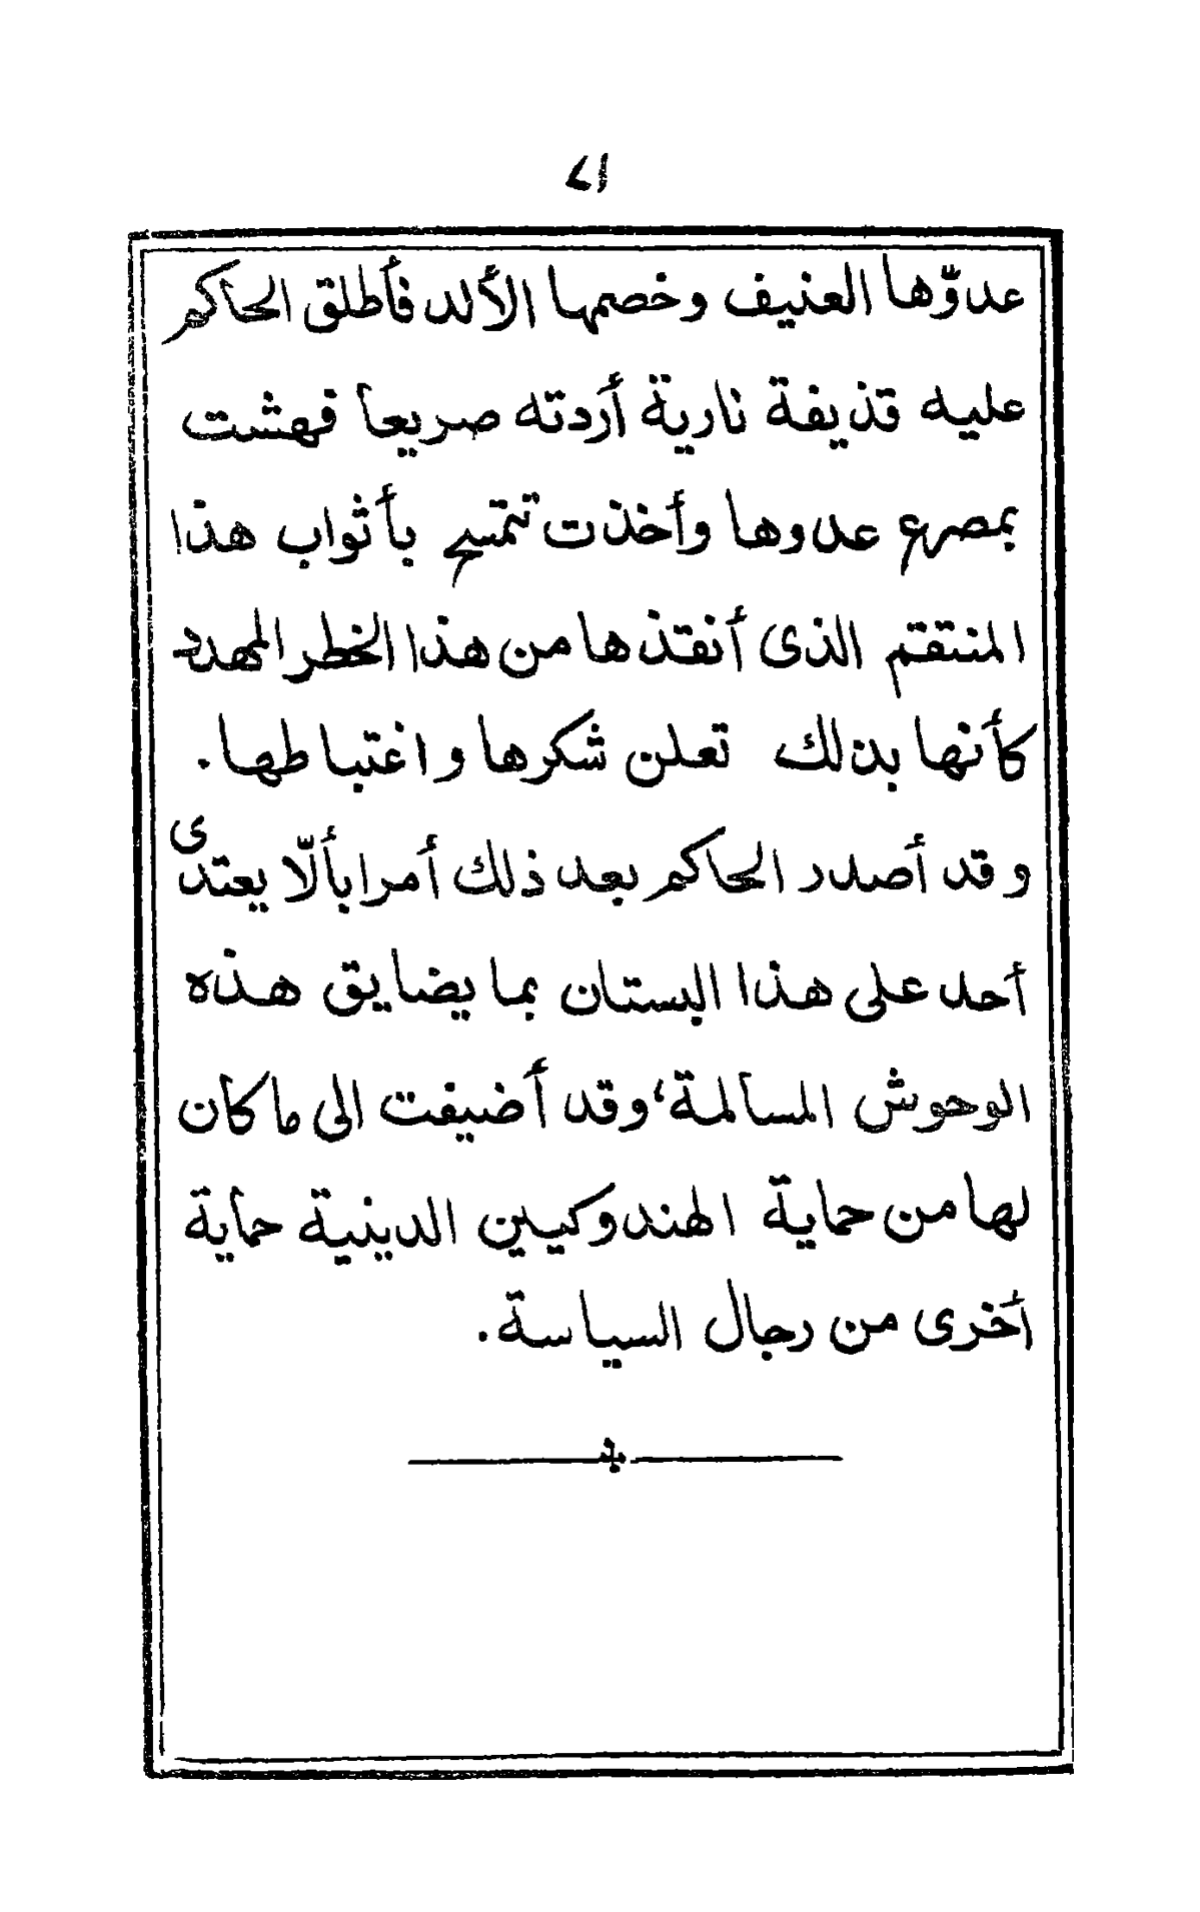 ٧١
عدوّها العنيف وخصمها الألد فأطلق الحاكم
عليه قذيفة نارية أردته صريعا فهشت
بمصرع عدوها وأخذت تتمسح بأثواب هذا
المنتقم الذى أنقذها من هذا الخطر المهدد
كأنها بذلك تعلن شكرها واغتباطها .
وقد أصدر الحاكم بعد ذلك أمرا بألاّ يعتدى
أحد على هذا البستان بما يضايق هذه
الوحوش المسالمة، وقد أضيفت الى ما كان
لها من حماية الهندوكيين الدينية حماية
أخرى من رجال السياسة .